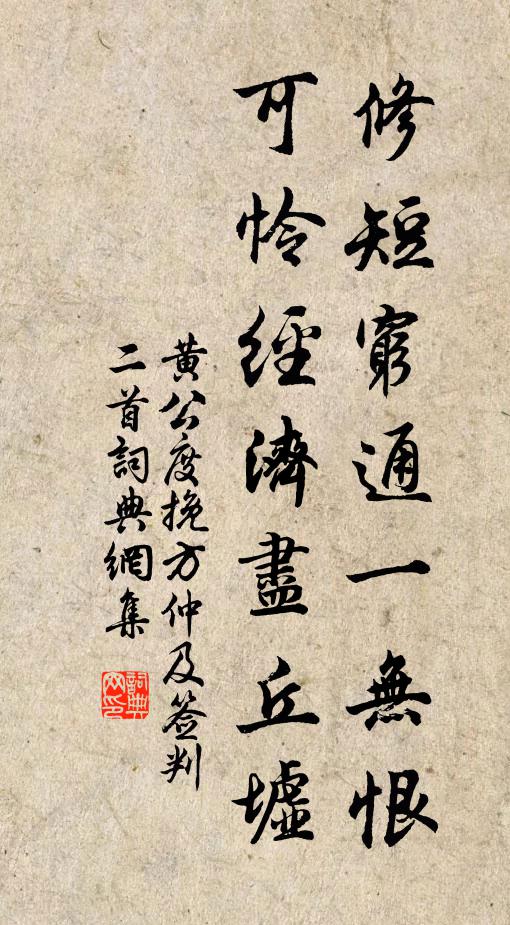 修短窮通一無恨
可怜經濟盡丘墟
黃公度挽方仲及簽判
二首詞典網集
詞典网印